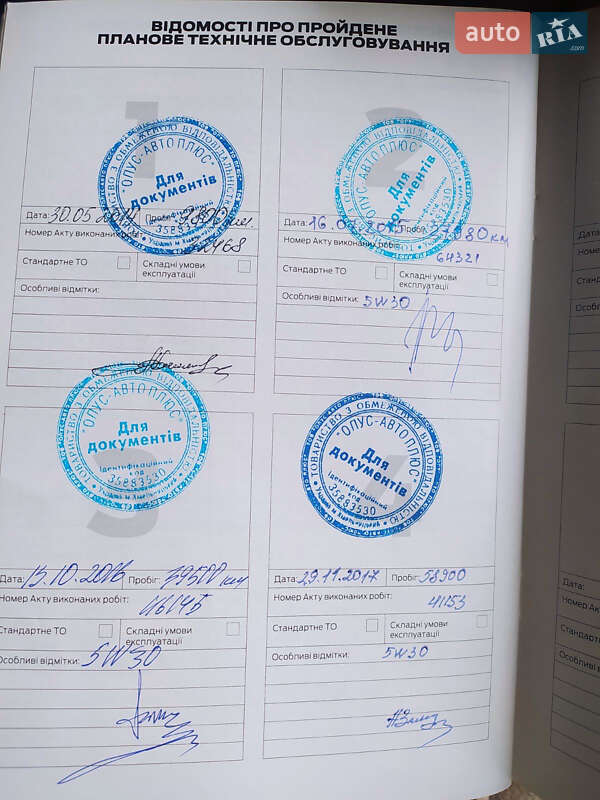 ВІДОМОСТІ ПРО ПРОЙДЕНЕ
ПЛАНОВЕ ТЕХНІЧНЕ ОБСЛУГОВУВАННЯ
auto RIA .com
1
З ОБМЕЖЕНОЮ ВІДПОВІДАЛЬНІСТЮ
"ОПУС-АВТО ПЛЮС"
Для
документів
Ідентифікаційний
35883530
Україна м
Дата: 30.05.2014 Пробіг:
Номер Акту виконаних робіт:
Стандартне ТО
Складні умови
експлуатації
Особливі відмітки:
2
"ОПУС-АВТО ПЛЮС"
Для
документів
Дата: 16. Пробіг: 080 км
Номер Акту виконаних робіт: 64321
Стандартне ТО
Складні умови
експлуатації
Особливі відмітки: 5W30
3
ТОВАРИСТВО З ОБМЕЖЕНОЮ ВІДПОВІДАЛЬНІСТЮ
"ОПУС-АВТО ПЛЮС"
Для
документів
Ідентифікаційний
код
35883530
Україна м Хмельницький
Дата: 13.10.2016 Пробіг: 39500 км
Номер Акту виконаних робіт:
Стандартне ТО
Складні умови
експлуатації
Особливі відмітки: 5W30
ТОВАРИСТВО З ОБМЕЖЕНОЮ ВІДПОВІДАЛЬНІСТЮ
"ОПУС-АВТО ПЛЮС"
Для
документів
Ідентифікаційний
код
35883530
Україна м Хмельницький
Дата: 29.11.2017 Пробіг: 58900
Номер Акту виконаних робіт: 41153
Стандартне ТО
Складні умови
експлуатації
Особливі відмітки: 5W30
Дата:
Номер Акту
Стандартне
Особливі